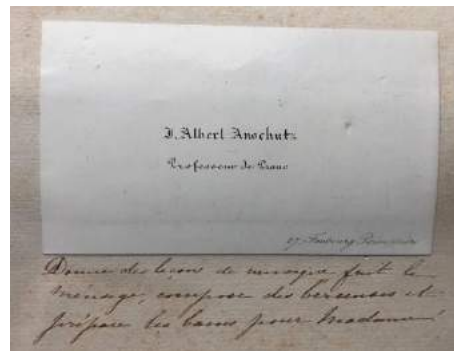 J. Albert Anschutz
Professeur de Piano
27 Faubourg Poissonnière
Donne des leçons de musique fait le
ménage, compose des berceuses et
prépare les bains pour Madame!